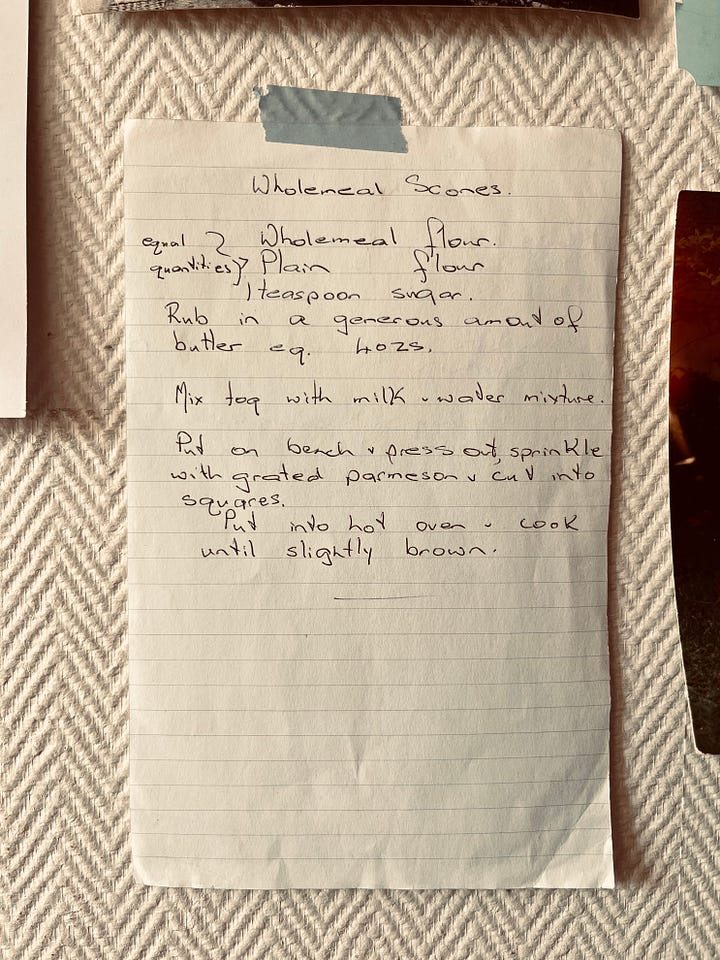 Wholemeal Scones.
equal } Wholemeal flour.
quantities } Plain flour
1 teaspoon sugar.
Rub in a generous amout of
butter eg. 4ozs.
Mix tog with milk & water mixture.
Put on bench & press out, sprinkle
with grated parmeson & cut into
squares.
Put into hot oven & cook
until slightly brown.